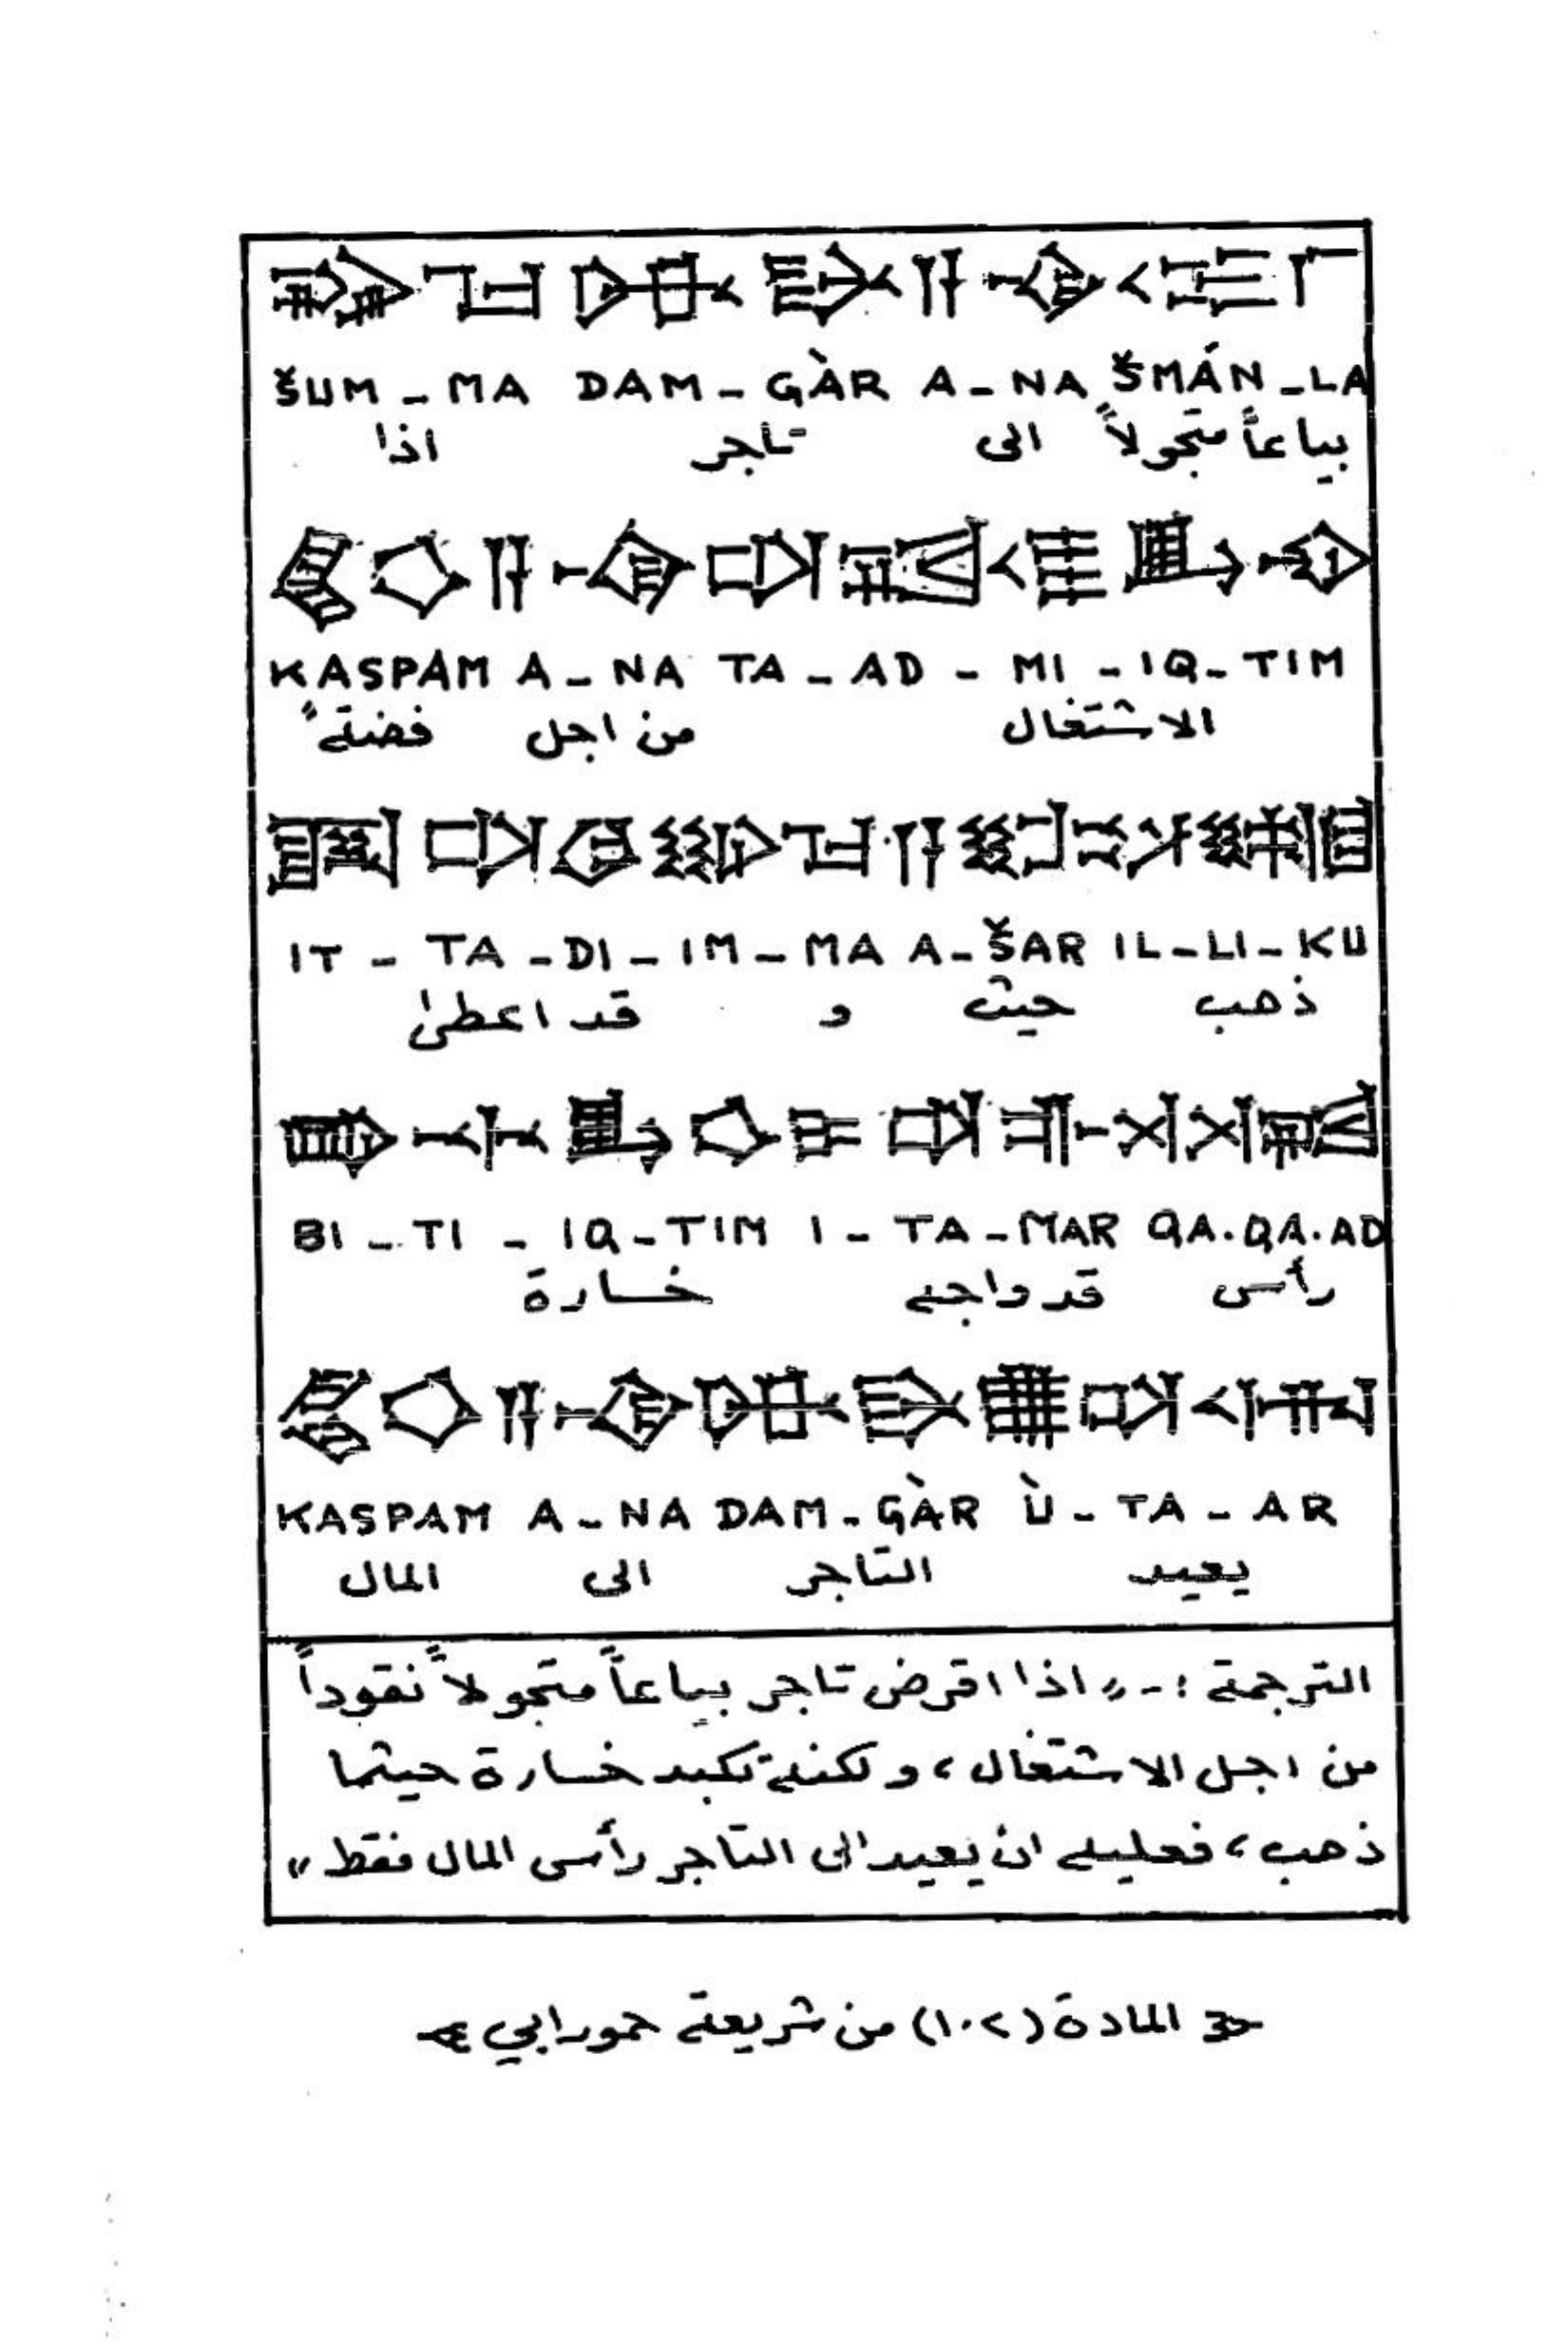 ŠUM - MA DAM - GÀR A - NA ŠMÁN - LA
بياعاً متجولاً الى تاجر اذا
KASPAM A - NA TA - AD - MI - IQ - TIM
الاشتغال من اجل فضةً
IT - TA - DI - IM - MA A - ŠAR IL - LI - KU
ذهب حيث و قد اعطىٰ
BI - TI - IQ - TIM I - TA - MAR QA . QA . AD
رأس قد واجه خسارة
KASPAM A - NA DAM - GÀR Ù - TA - AR
يعيد التاجر الى المال
الترجمة :- „ اذا اقرض تاجر بياعاً متجولاً نقوداً
من اجل الاشتغال ، ولكنه تكبد خسارة حيثما
ذهب ، فعليه ان يعيد الى التاجر رأس المال فقط "
المادة (١٠٢) من شريعة حمورابي